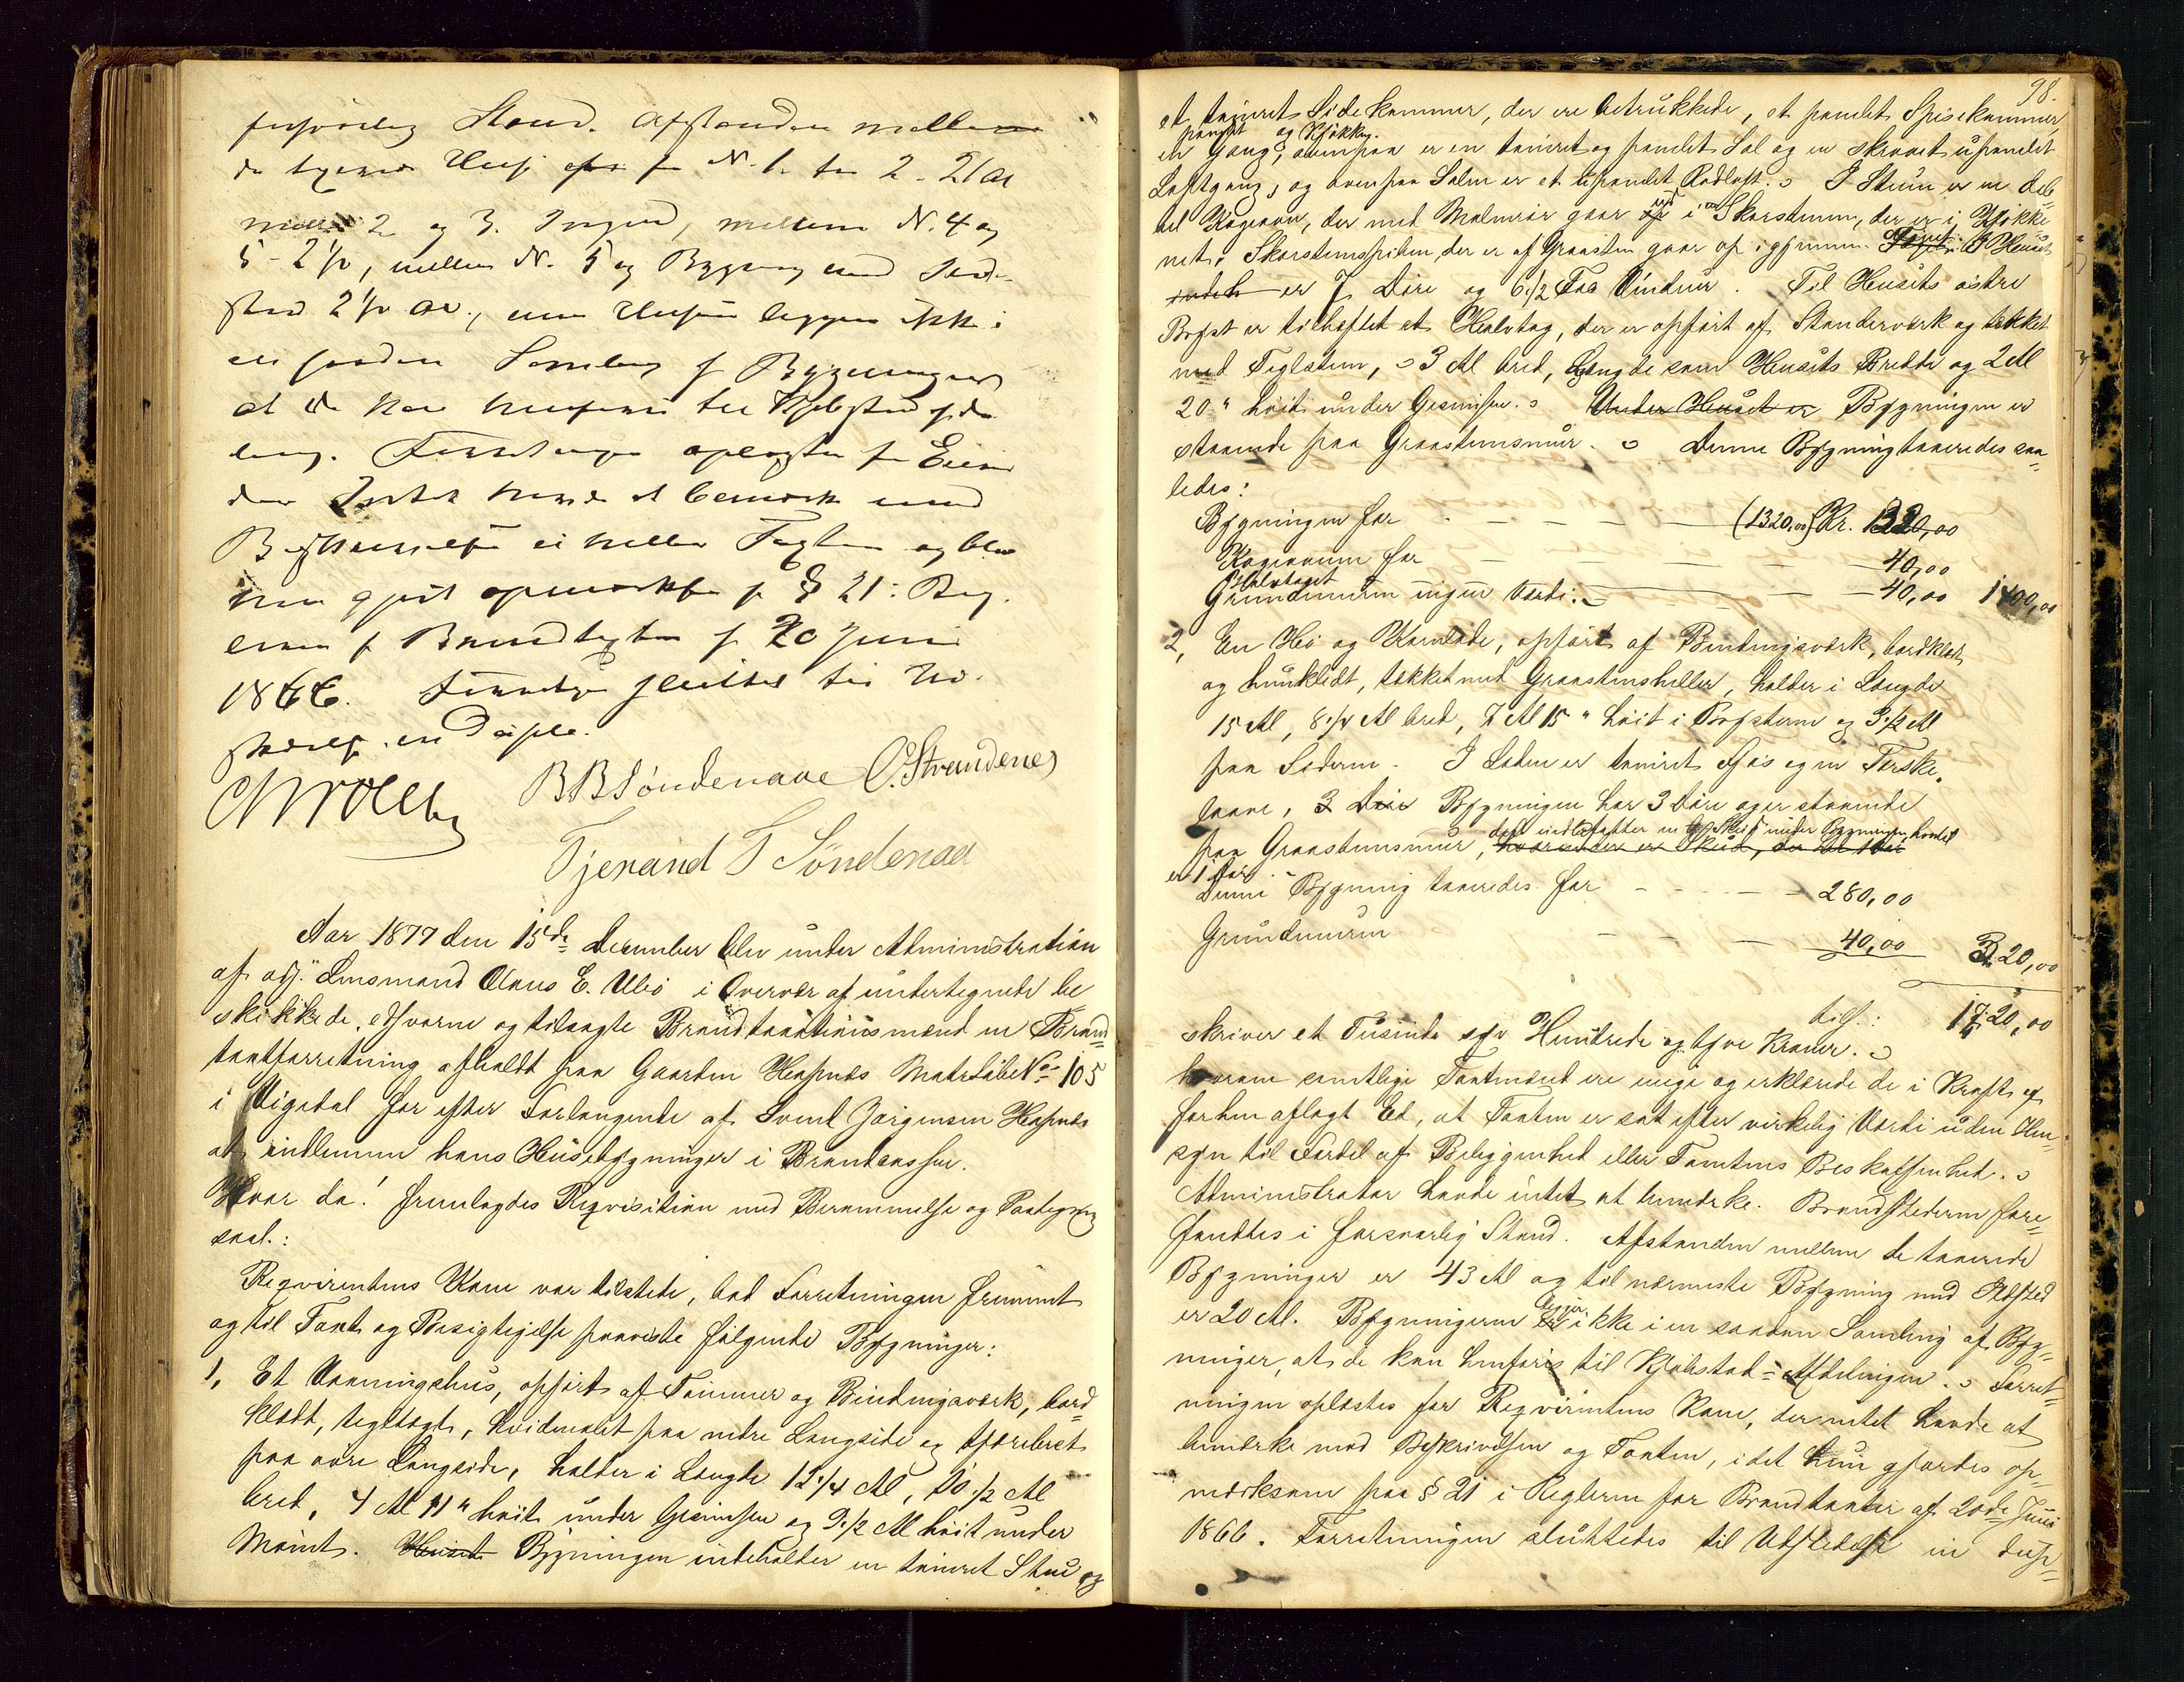 forsvarlig Stand. Afstanden mellem
de taxerede Huse er fra N. 1 til 2 - 21 Al
mellem 2 og 3. Ingen, mellem N. 4 og
5 - 2 1/2, mellem N. 5 og Bygning med Ild-
sted 2 1/2 Al., men Husene ligger ikke i
en saadan Samling af Bygninger
at de kan henføres til Kjøbstadafde-
ling. Forretningen oplæstes for Eieren
der Intet havde at bemærke mod
Beskrivelsen ei heller Taxten og blev
han gjort opmærksom paa § 21 i Reg-
lerne for Brandtaxter af 20 Juni
1866. Forretningen sluttet til Ud-
stædelse in duplo.
B B Søndenaae O. Strandenes
Tjerand T Søndenaa
Aar 1877 den 15de December blev under Administration
af adj. Lensmand Claus E. Ulvø i Overvær af undertegnede be-
skikkede, edsvorne og tilsagte Brandtaxtationsmænd en Brand-
taxtforretning afholdt paa Gaarden Hapnæs Matr Løbe No 105
i Vigedal for efter Forlangende af Svend Jørgensen Hapnæs
at indlemme hans Husebygninger i Brandcassen.
Hvor da! fremlagdes Reqvisition med Berammelse og Paategning
saal.:
Reqvirentens Kone var tilstede, bad Forretningen fremmet
og til Taxt og Besigtigelse paaviste følgende Bygninger:
1, Et Vaaningshus, opført af Tømmer og Bindingsværk, bord-
klædt, tegltagt, hvidmalet paa nedre Langside og tjærebret
paa øvre Langside, holder i Længde 15 1/4 Al, 10 1/2 Al
bred, 4 Al 11" høit under Gesimsen og 9 1/2 Al høit under
Mønet. Huset Bygningen indeholder en tømret Stue og
98.
et tømret Sidekammer, der ere betrukkede, et panelet Spisekammer,
panelet og Kjøkken.
en Gang, ovenpaa er en tømret og panelet Sal og en skraaet upanelet
Loftgang, og ovenpaa Salen er et upanelet Rodloft. I Stuen er en deb-
bel Kogeovn, der med Malmrør gaar op ind i en Skorsten, der er i Kjøkke-
net. Skorstenspiben der er af Graasten gaar op igjennem Taget. I Huset
indeh er 7 Døre og 6 1/2 Fag Vinduer. Til Husets østre
Bryst er tilhæftet et Halvtag, der er opført af Standerværk og tækket
med Teglsten, 3 Al bred, Længde som Husets Bredde og 2 Al
20" høit under Gesimsen. Under Huset er Bygningen er
staaende paa Graastensmur. Denne Bygning taxeredes saa-
ledes:
Bygningen for - - - - (1320,00) Kr. 1320,00
Kogeovnen for - - - - 40,00
Halvtaget
Grundmuren ingen Værdi. - - 40,00 1400,00
2, En Hø og Kornlade, opført af Bindingsværk, bordklædt
og hunklædt, tækket med Graastensheller, holder i Længde
15 Al, 8 1/4 Al bred, 7 Al 15" høit i Brysterne og 3 1/2 Al
paa Siderne. I Laden er tømret Fjøs og en Tærske-
laave, 3 Døre Bygningen har 3 Døre og er staaende
det indbefatter en Skud under Bygningen hvortil
paa Graastensmur, hvorunder er Skud, der har 1 Dør
er 1 Dør.
Denne Bygning taxeredes for - - - 280,00
Grundmuren - - - 40,00 320,00
tils.: 1720,00
skriver et Tusinde syv Hundrede og tyve Kroner.
hvorom samtlige Taxtmænd ere enige og erklærede de i Kraft af
forhen aflagt Ed, at Taxten er sat efter virkelig Værdi uden Hen-
syn til Fordel af Beliggenhed eller Tomtens Beskaffenhed.
Administrator havde intet at bemærke. Brandstederne fore-
fandtes i forsvarlig Stand. Afstanden mellem de taxerede
Bygninger er 43 Al og til nærmeste Bygning med Ildsted
er 20 Al. Bygningerne er ligger ikke i en saadan Samling af Byg-
ninger, at de kan henføres til Kjøbstad-Afdelingen. Forret-
ningen oplæstes for Reqvirentens Kone, der intet havde at
bemærke mod Beskrivelsen og Taxten, idet hun gjordes op-
mærksom paa § 21 i Reglerne for Brandtaxter af 20de Juni
1866. Forretningen sluttedes til Udstedelse in dup-